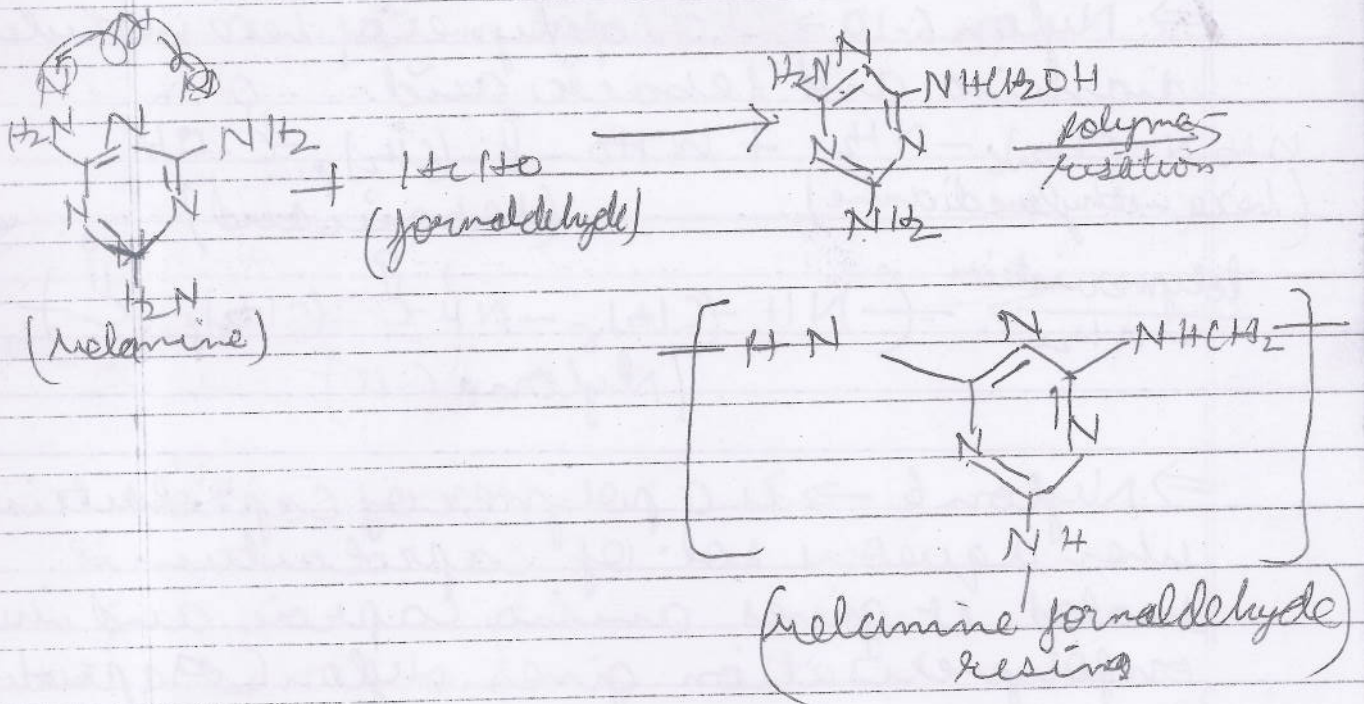 H₂N N NH₂
N N
H₂N
(melamine)
+ HCHO
(formaldehyde)
H₂N N NHCH₂OH
N N
NH₂
polyme-
risation
HN N NHCH₂
N N
NH
(melamine formaldehyde
resins)